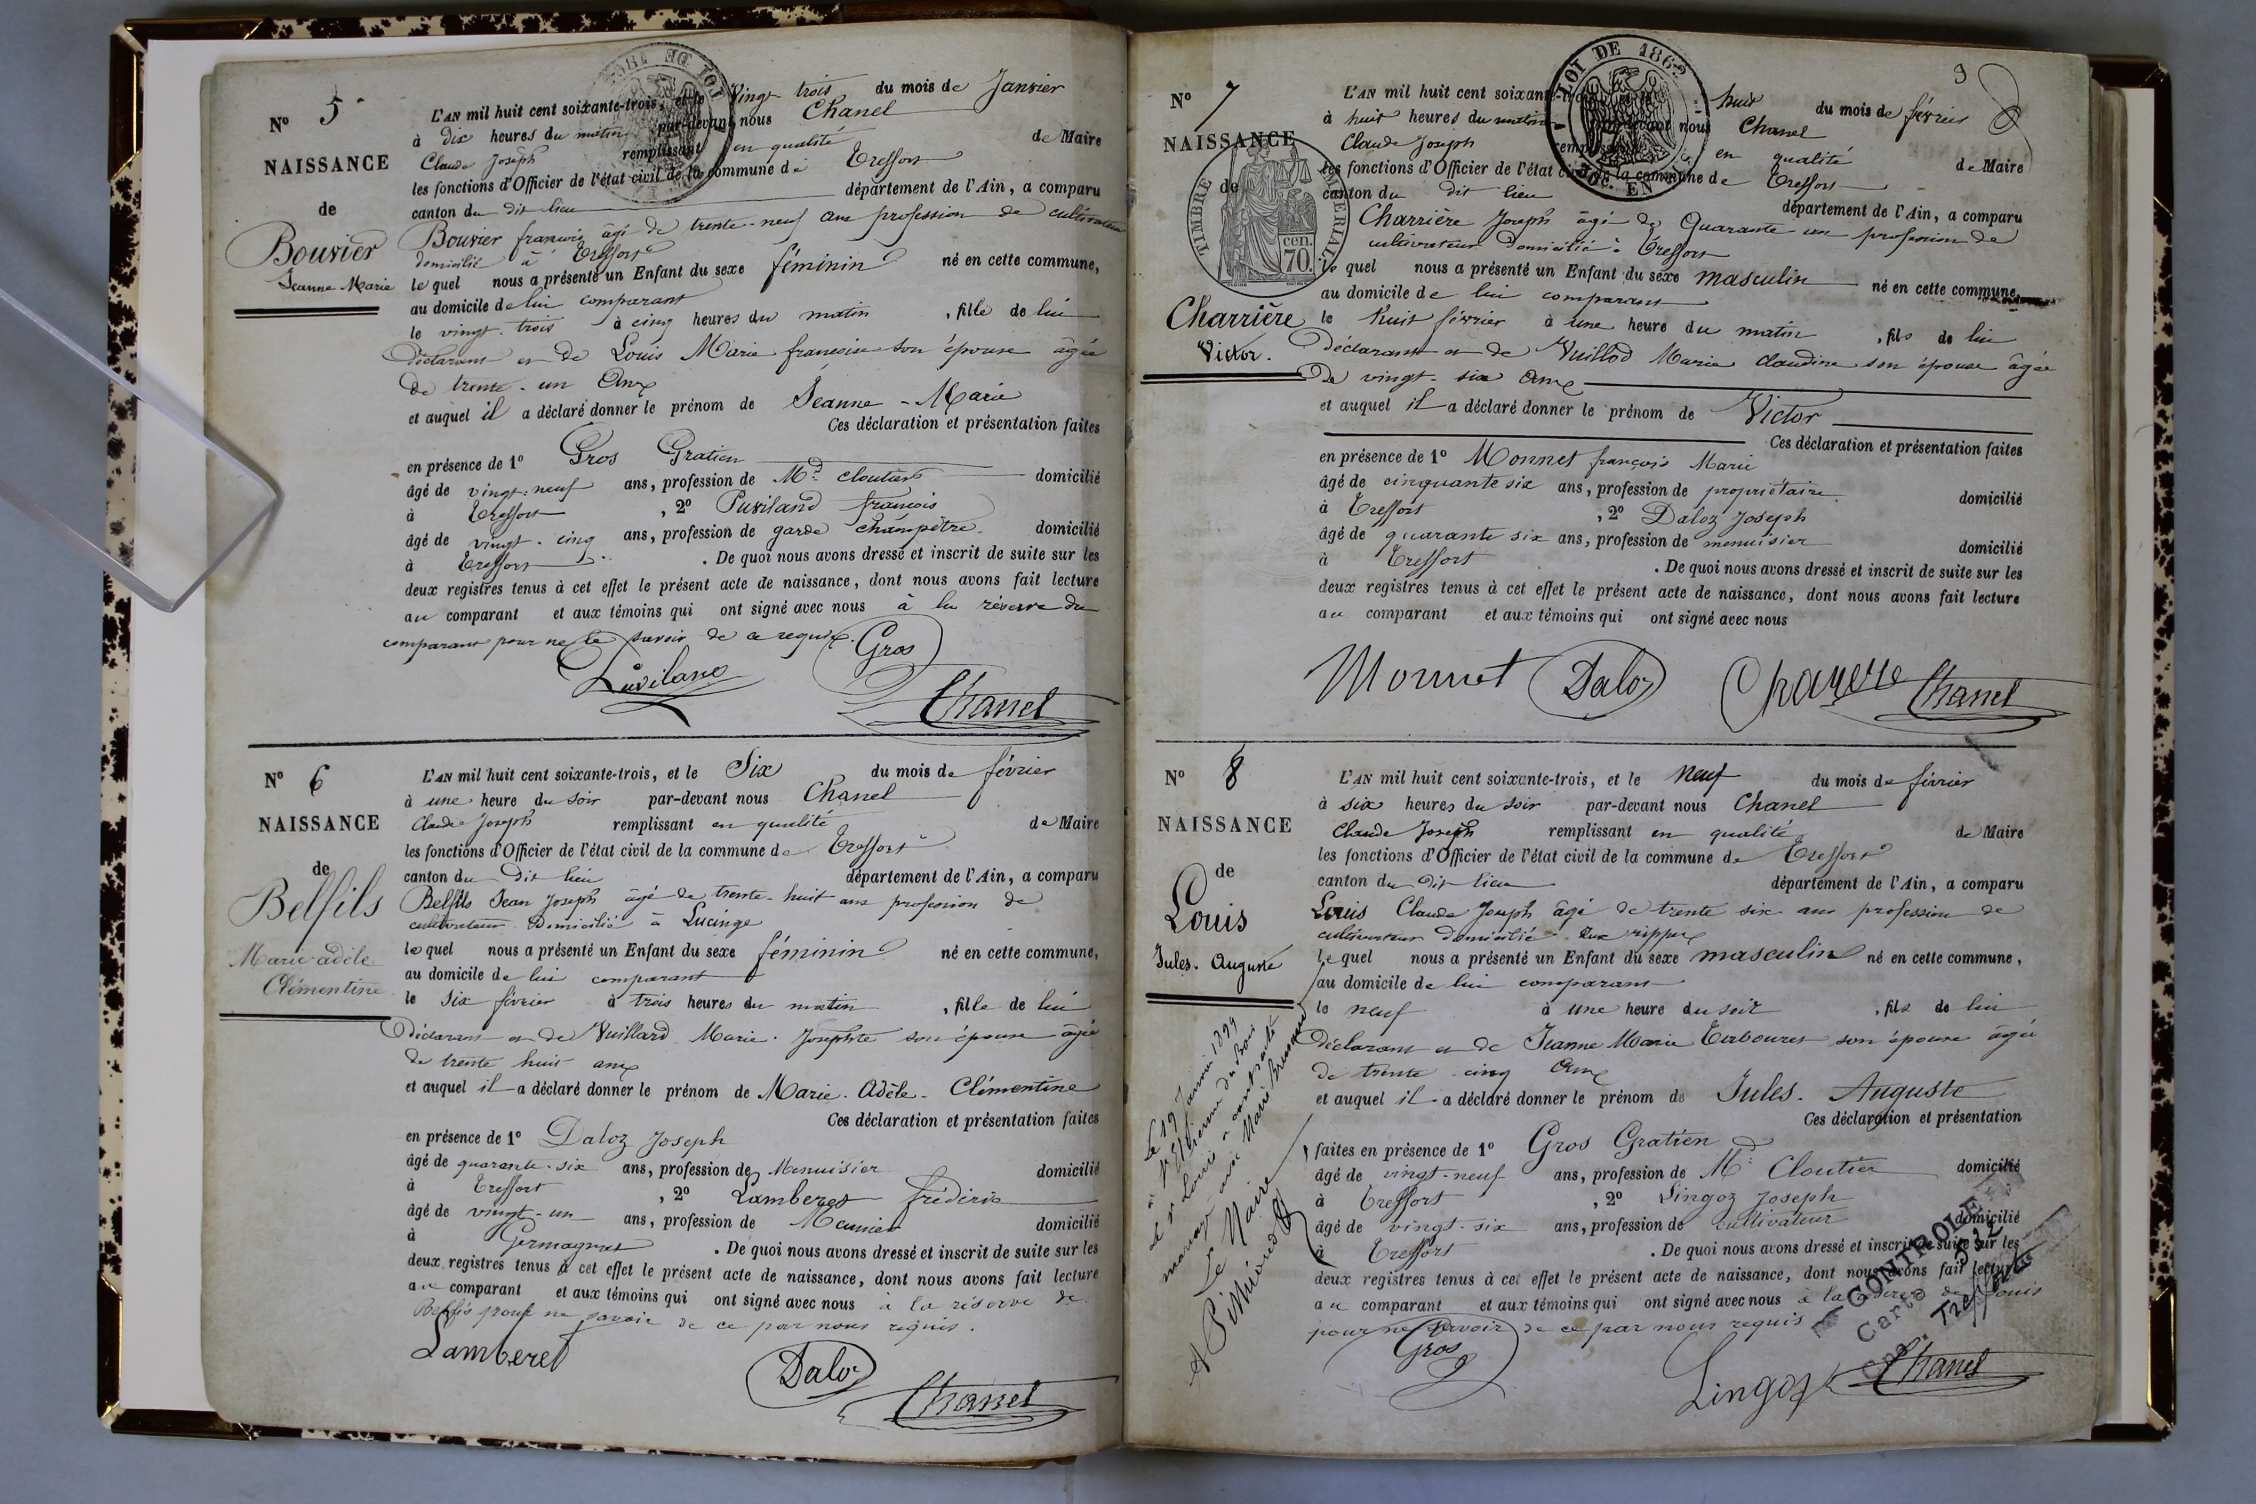 N° 5
NAISSANCE
de
Bouvier
Jeanne Marie
L'AN mil huit cent soixante-trois, et le Vingt trois du mois de Janvier
à dix heures du matin par-devant nous Chanel
Claude Joseph remplissant en qualité de Maire
les fonctions d'Officier de l'état civil de la commune de Treffort
canton du dit lieu département de l'Ain, a comparu
Bouvier francois âgé de trente-neuf ans profession de cultivateur
domicilié à Treffort
lequel nous a présenté un Enfant du sexe féminin né en cette commune,
au domicile de lui comparant
le vingt-trois à cinq heures du matin, fille de lui
déclarant et de Louis Marie francoise son épouse âgée
de trente-un ans
et auquel il a déclaré donner le prénom de Jeanne-Marie
Ces déclaration et présentation faites
en présence de 1° Gros Gratien
âgé de vingt-neuf ans, profession de Md cloutier domicilié
à Treffort, 2° Puviland francois
âgé de vingt-cinq ans, profession de garde champêtre domicilié
à Treffort. De quoi nous avons dressé et inscrit de suite sur les
deux registres tenus à cet effet le présent acte de naissance, dont nous avons fait lecture
au comparant et aux témoins qui ont signé avec nous à la réserve du
comparant pour ne le savoir de ce requis. Gros
Puviland
Chanel
N° 6
NAISSANCE
de
Belfils
Marie adèle
Clémentine
L'AN mil huit cent soixante-trois, et le Six du mois de février
à une heure du soir par-devant nous Chanel
Claude Joseph remplissant en qualité de Maire
les fonctions d'Officier de l'état civil de la commune de Treffort
canton du dit lieu département de l'Ain, a comparu
Belfils Jean Joseph âgé de trente-huit ans profession de
cultivateur Domicilié à Lucinge
lequel nous a présenté un Enfant du sexe féminin né en cette commune,
au domicile de lui comparant
le six février à trois heures du matin, fille de lui
déclarant et de Vuillard Marie Josephte son épouse âgée
de trente huit ans
et auquel il a déclaré donner le prénom de Marie-Adèle-Clémentine
Ces déclaration et présentation faites
en présence de 1° Daloz Joseph
âgé de quarante-six ans, profession de Menuisier domicilié
à Treffort, 2° Lamberet frédéric
âgé de vingt-un ans, profession de Meunier domicilié
à Germagnat. De quoi nous avons dressé et inscrit de suite sur les
deux registres tenus à cet effet le présent acte de naissance, dont nous avons fait lecture
au comparant et aux témoins qui ont signé avec nous à la réserve de
Belfils pour ne savoir de ce par nous requis.
Lamberet
Daloz
Chanel
9
N° 7
NAISSANCE
de
Charrière
Victor.
TIMBRE IMPERIAL
70. cen.
LOI DE 1862
L'AN mil huit cent soixante-trois, et le huit du mois de février
à huit heures du matin par-devant nous Chanel
Claude Joseph remplissant en qualité de Maire
les fonctions d'Officier de l'état civil de la commune de Treffort
canton du dit lieu département de l'Ain, a comparu
Charrière Joseph âgé de Quarante-un profession de
cultivateur domicilié à Treffort
lequel nous a présenté un Enfant du sexe masculin né en cette commune,
au domicile de lui comparant
le huit février à une heure du matin, fils de lui
déclarant et de Vuillod Marie claudine son épouse âgée
de vingt-six ans
et auquel il a déclaré donner le prénom de Victor
Ces déclaration et présentation faites
en présence de 1° Monnet françois Marie
âgé de cinquante six ans, profession de propriétaire domicilié
à Treffort, 2° Daloz Joseph
âgé de quarante six ans, profession de menuisier domicilié
à Treffort. De quoi nous avons dressé et inscrit de suite sur les
deux registres tenus à cet effet le présent acte de naissance, dont nous avons fait lecture
au comparant et aux témoins qui ont signé avec nous
Monnet Daloz Chanel
N° 8
NAISSANCE
de
Louis
Jules. Auguste
L'AN mil huit cent soixante-trois, et le neuf du mois de février
à six heures du soir par-devant nous Chanel
Claude Joseph remplissant en qualité de Maire
les fonctions d'Officier de l'état civil de la commune de Treffort
canton du dit lieu département de l'Ain, a comparu
Louis Claude Joseph âgé de trente six ans profession de
cultivateur domicilié aux rippes
lequel nous a présenté un Enfant du sexe masculin né en cette commune,
au domicile de lui comparant
le neuf à une heure du soir, fils de lui
déclarant et de Jeanne Marie son épouse âgée
de trente-cinq ans
et auquel il a déclaré donner le prénom de Jules. Auguste
Ces déclaration et présentation
faites en présence de 1° Gros Gratien
âgé de vingt-neuf ans, profession de Md Cloutier domicilié
à Treffort, 2° Lingoz Joseph
âgé de vingt-six ans, profession de cultivateur domicilié
à Treffort. De quoi nous avons dressé et inscrit de suite sur les
deux registres tenus à cet effet le présent acte de naissance, dont nous avons fait lecture
au comparant et aux témoins qui ont signé avec nous à la réserve de Louis
pour ne savoir de ce par nous requis
Gros
Lingoz
Chanel
Le 19 Janvier 1899
à St Etienne du bois
le sr Louis a contracté
mariage avec Marie
Le Maire
CONTROLE
Carte 512
Treffort